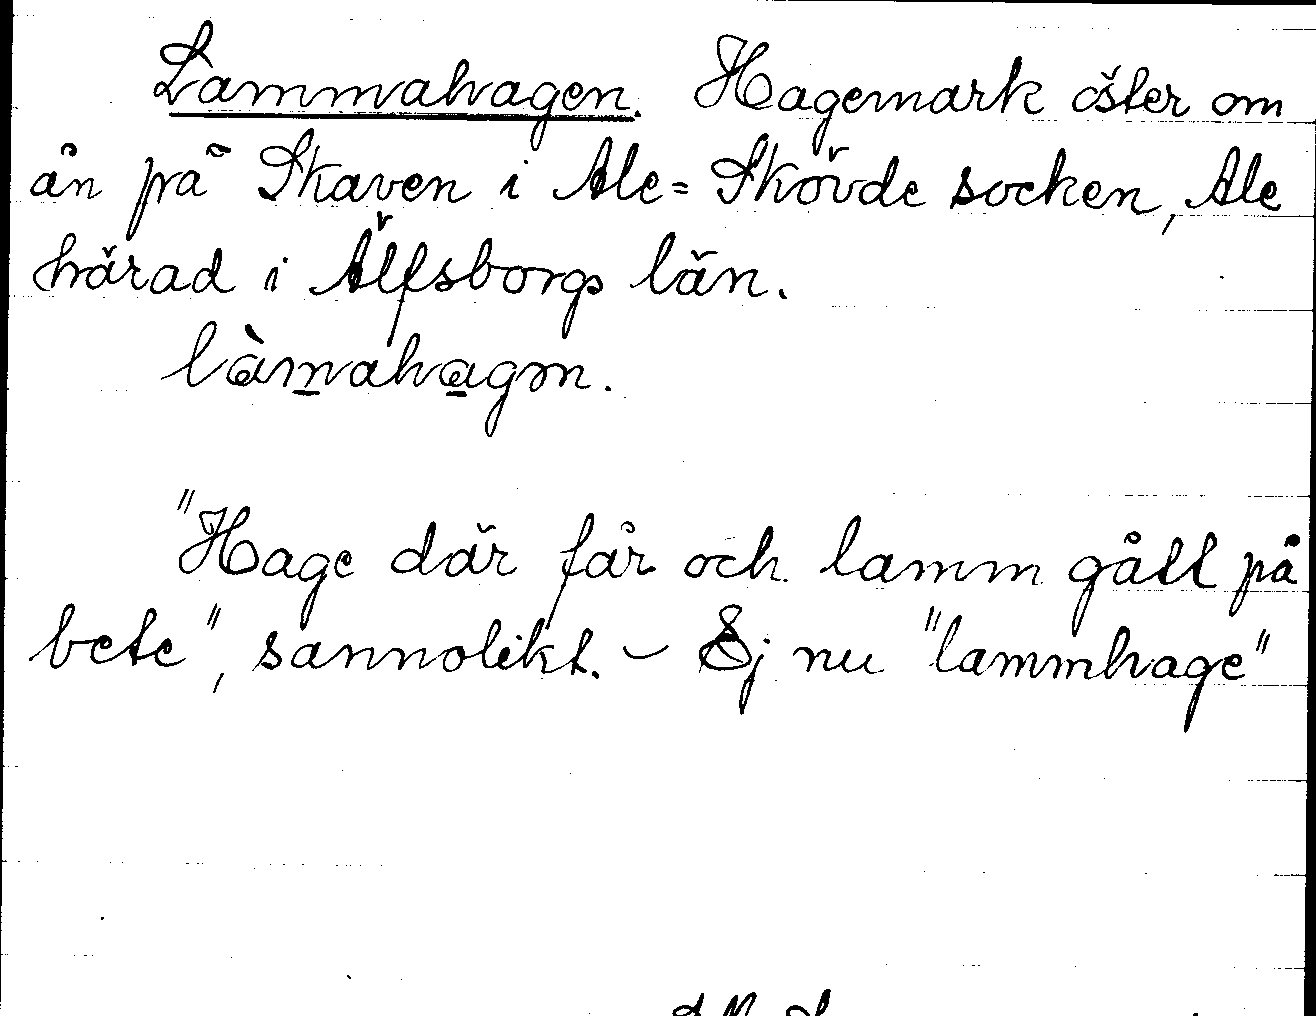 Lammahagen. Hagemark öster om
ån på Skaven i Ale-Skövde socken, Ale
härad i Älfsborgs län.
làm̲aha̲gən.
"Hage där får och lamm gått på
bete", sannolikt. – Ej nu "lammhage"